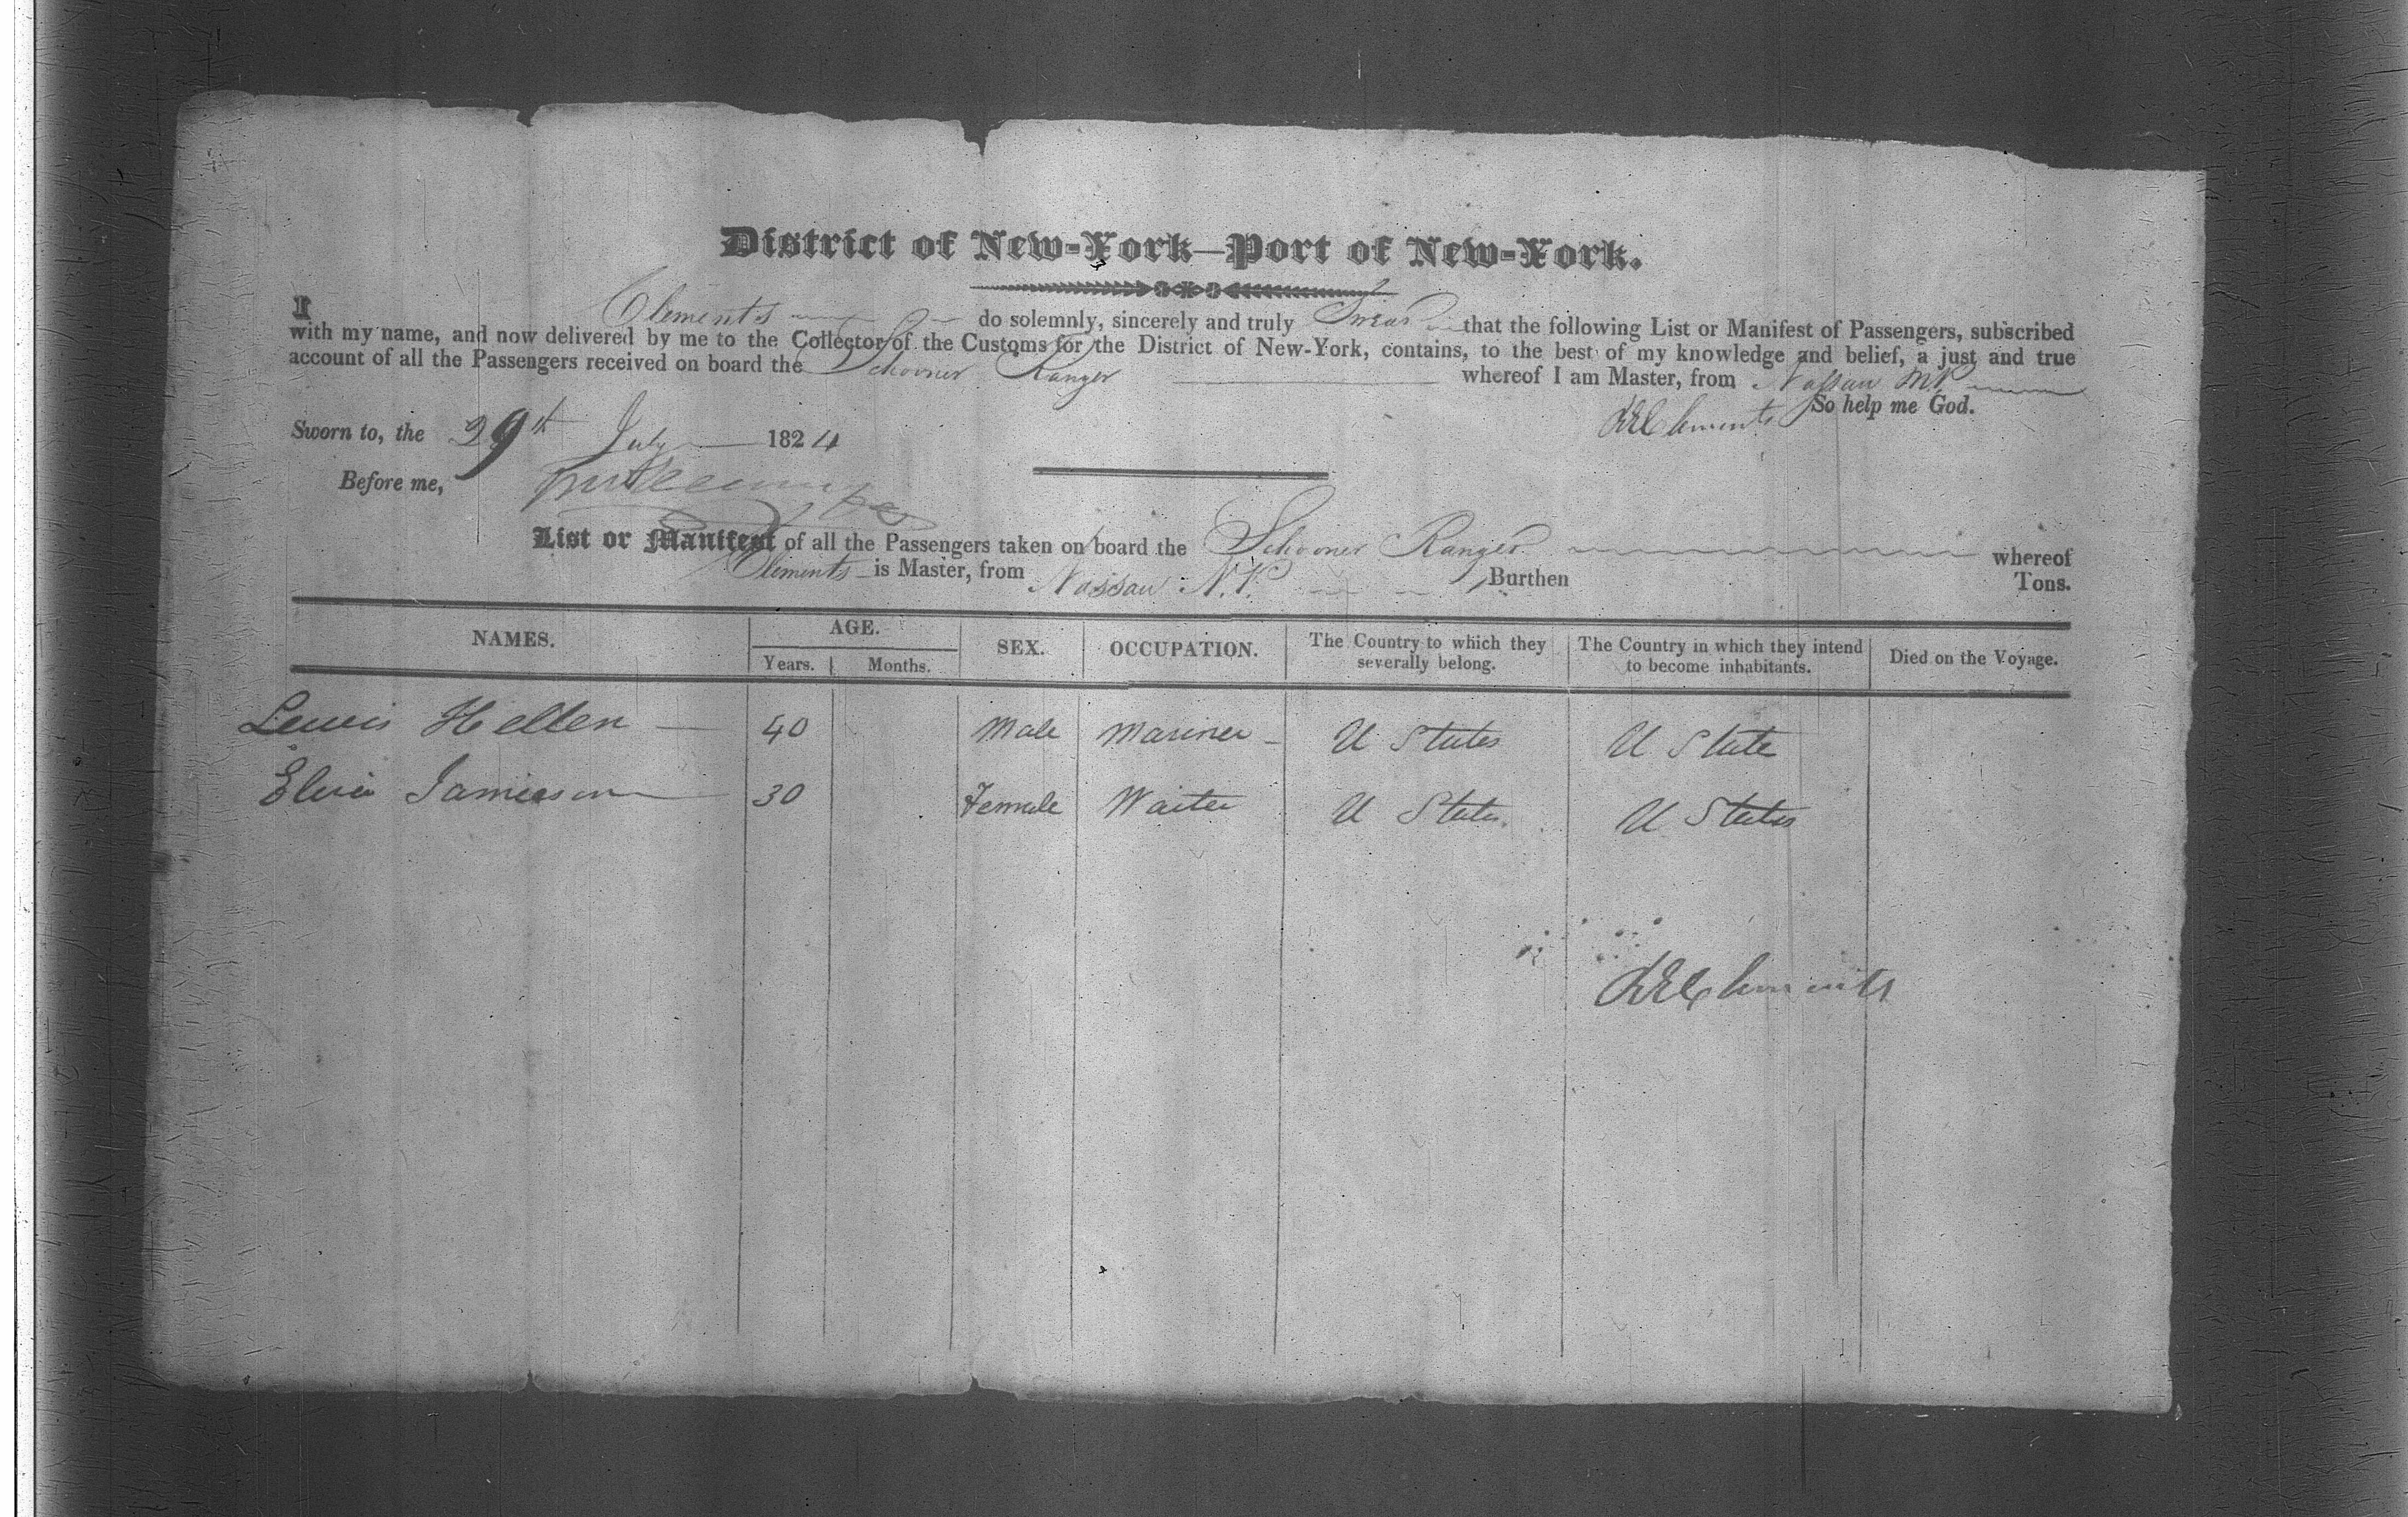 District of New-York—Port of New-York.
I Clements do solemnly, sincerely and truly Swear that the following List or Manifest of Passengers, subscribed
with my name, and now delivered by me to the Collector of the Customs for the District of New-York, contains, to the best of my knowledge and belief, a just and true
account of all the Passengers received on board the Schooner Ranger whereof I am Master, from Nassau N.P.
So help me God.
Clements
Sworn to, the 29th July 1824
Before me,
List or Manifest of all the Passengers taken on board the Schooner Ranger whereof
Clements is Master, from Nassau N.P. Burthen Tons.
NAMES. AGE. SEX. OCCUPATION. The Country to which they severally belong. The Country in which they intend to become inhabitants. Died on the Voyage.
Years. Months.
Lewis Hellen 40 Male Mariner U States U State
Jamieson 30 Female Waiter U States U States
Clements